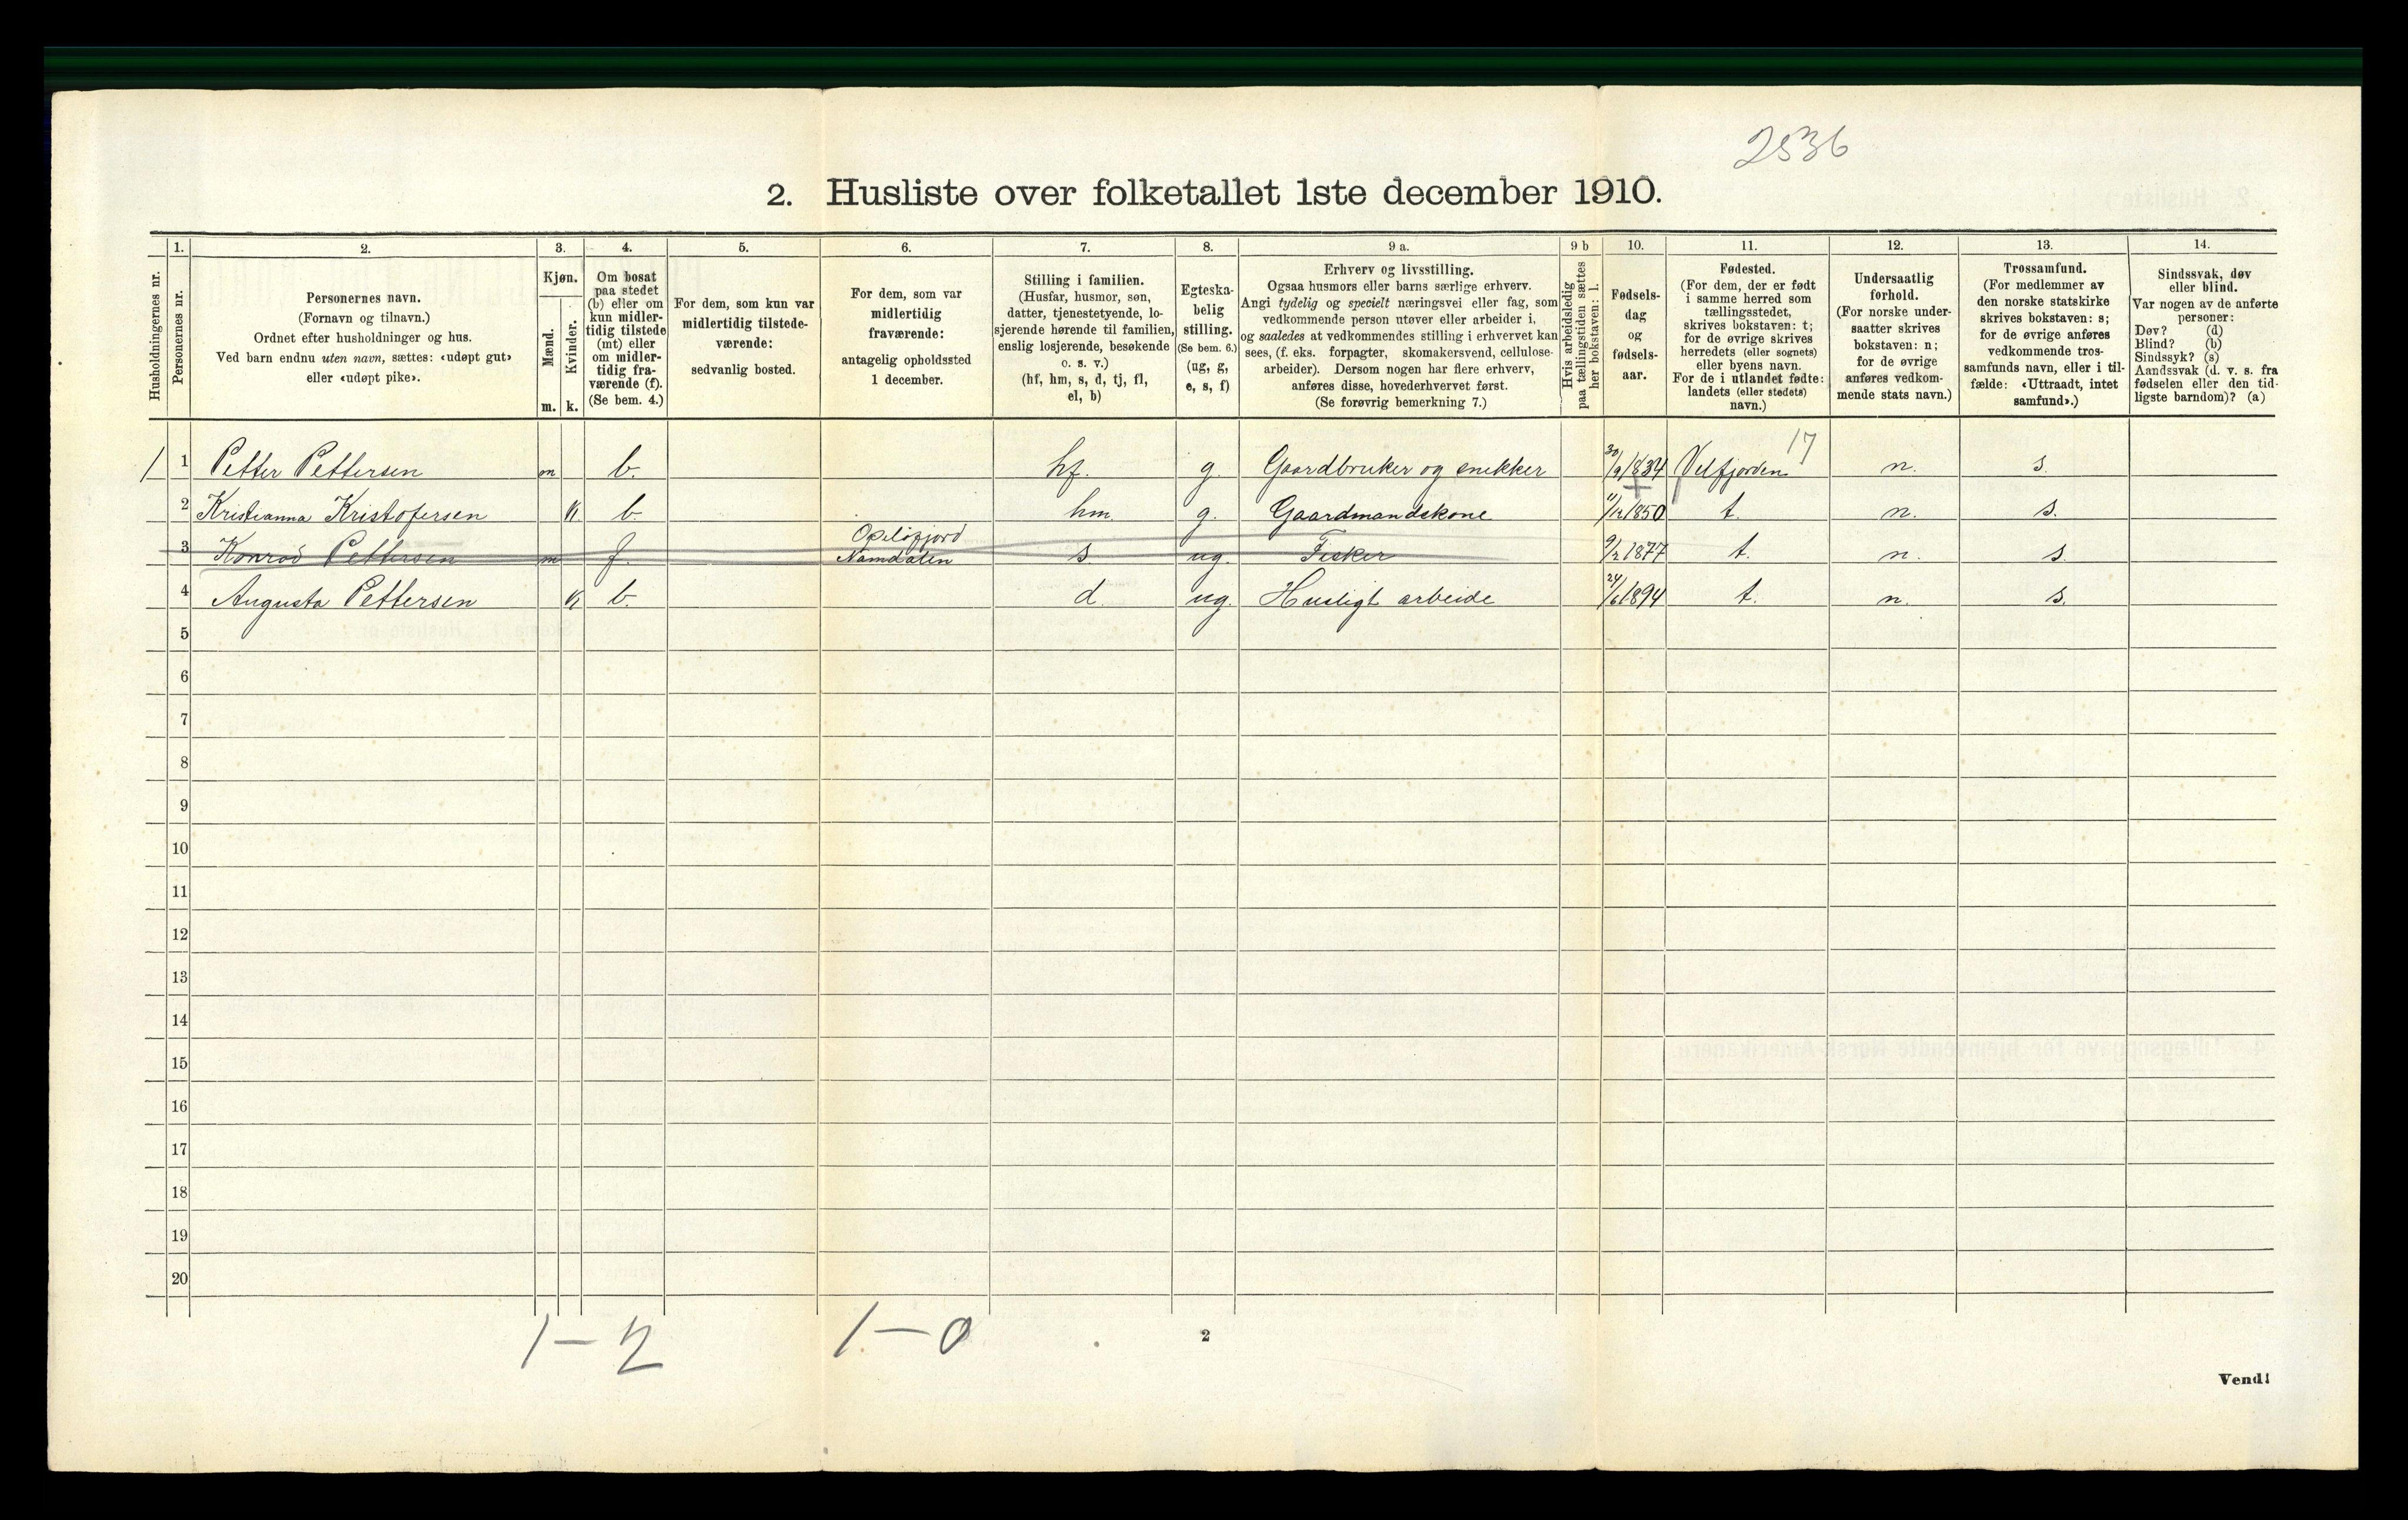 2536
2. Husliste over folketallet 1ste december 1910.
Husholdningernes nr.
1.
Personernes nr.
2.
Personernes navn.
(Fornavn og tilnavn.)
Ordnet efter husholdninger og hus.
Ved barn endnu uten navn, sættes: «udøpt gut»
eller «udøpt pike».
3.
Kjøn.
Mænd.
Kvinder.
m. k.
4.
Om bosat
paa stedet
(b) eller om
kun midler-
tidig tilstede
(mt) eller
om midler-
tidig fra-
værende (f).
(Se bem. 4.)
5.
For dem, som kun var
midlertidig tilstede-
værende:
sedvanlig bosted.
6.
For dem, som var
midlertidig
fraværende:
antagelig opholdssted
1 december.
7.
Stilling i familien.
(Husfar, husmor, søn,
datter, tjenestetyende, lo-
sjerende hørende til familien,
enslig losjerende, besøkende
o. s. v.)
(hf, hm, s, d, tj, fl,
el, b)
8.
Egteska-
belig
stilling.
(Se bem. 6.)
(ug, g,
e, s, f)
9 a.
Erhverv og livsstilling.
Ogsaa husmors eller barns særlige erhverv.
Angi tydelig og specielt næringsvei eller fag, som
vedkommende person utøver eller arbeider i,
og saaledes at vedkommendes stilling i erhvervet kan
sees, (f. eks. forpagter, skomakersvend, cellulose-
arbeider). Dersom nogen har flere erhverv,
anføres disse, hovederhvervet først.
(Se forøvrig bemerkning 7.)
9 b
Hvis arbeidsledig
paa tællingstiden sættes
her bokstaven: l.
10.
Fødsels-
dag
og
fødsels-
aar.
11.
Fødested.
(For dem, der er født
i samme herred som
tællingsstedet,
skrives bokstaven: t;
for de øvrige skrives
herredets (eller sognets)
eller byens navn.
For de i utlandet fødte:
landets (eller stedets)
navn.)
12.
Undersaatlig
forhold.
(For norske under-
saatter skrives
bokstaven: n;
for de øvrige
anføres vedkom-
mende stats navn.)
13.
Trossamfund.
(For medlemmer av
den norske statskirke
skrives bokstaven: s;
for de øvrige anføres
vedkommende tros-
samfunds navn, eller i til-
fælde: «Uttraadt, intet
samfund».)
14.
Sindssvak, døv
eller blind.
Var nogen av de anførte
personer:
Døv? (d)
Blind? (b)
Sindssyk? (s)
Aandssvak (d. v. s. fra
fødselen eller den tid-
ligste barndom)? (a)
17
1 1 Petter Pettersen m b. hf. g. Gaardbruker og snekker 30/9 1834 Velfjorden n. s.
2 Kristianna Kristofersen k. b. hm. g. Gaardmandskone 11/12 1850 t. n. s.
Opløfjord
3 Konrad Pettersen m f. Namdalen s. ug. Fisker 9/2 1877 t. n. s.
4 Augusta Pettersen k b. d. ug. Husligt arbeide 24/6 1894 t. n. s.
5
6
7
8
9
10
11
12
13
14
15
16
17
18
19
20
1-2 1-0
2
Vend!